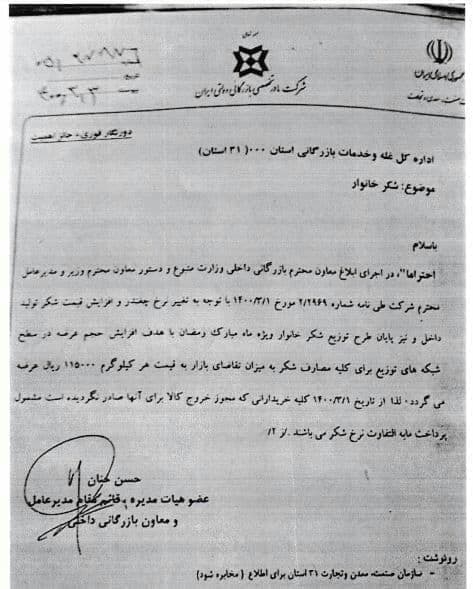 جمهوری اسلامی ایران
شرکت مادر تخصصی بازرگانی دولتی ایران
دورنگار فوری - حائز اهمیت
اداره کل غله وخدمات بازرگانی استان ۰۰۰( ۳۱ استان)
موضوع: شکر خانوار
باسلام
احتراما"، در اجرای ابلاغ معاون محترم بازرگانی داخلی وزارت متبوع و دستور معاون محترم وزیر و مدیرعامل
محترم شرکت طی نامه شماره ۲/۲۹۶۹ مورخ ۱۴۰۰/۳/۱ با توجه به تغییر نرخ چغندر و افزایش قیمت شکر تولید
داخل و نیز پایان طرح توزیع شکر خانوار ویژه ماه مبارک رمضان با هدف افزایش حجم عرضه در سطح
شبکه های توزیع برای کلیه مصارف شکر به میزان تقاضای بازار به قیمت هر کیلوگرم ۱۱۵۰۰۰ ریال عرضه
می گردد۰ لذا از تاریخ ۱۴۰۰/۳/۱ کلیه خریدارانی که مجوز خروج کالا برای آنها صادر نگردیده است مشمول
پرداخت مابه التفاوت نرخ شکر می باشند ./ز ۲/
حسن حنان
عضو هیات مدیره و قائم مقام مدیرعامل
و معاون بازرگانی داخلی
رونوشت :
- سازمان صنعت، معدن وتجارت ۳۱ استان برای اطلاع ( مخابره شود)